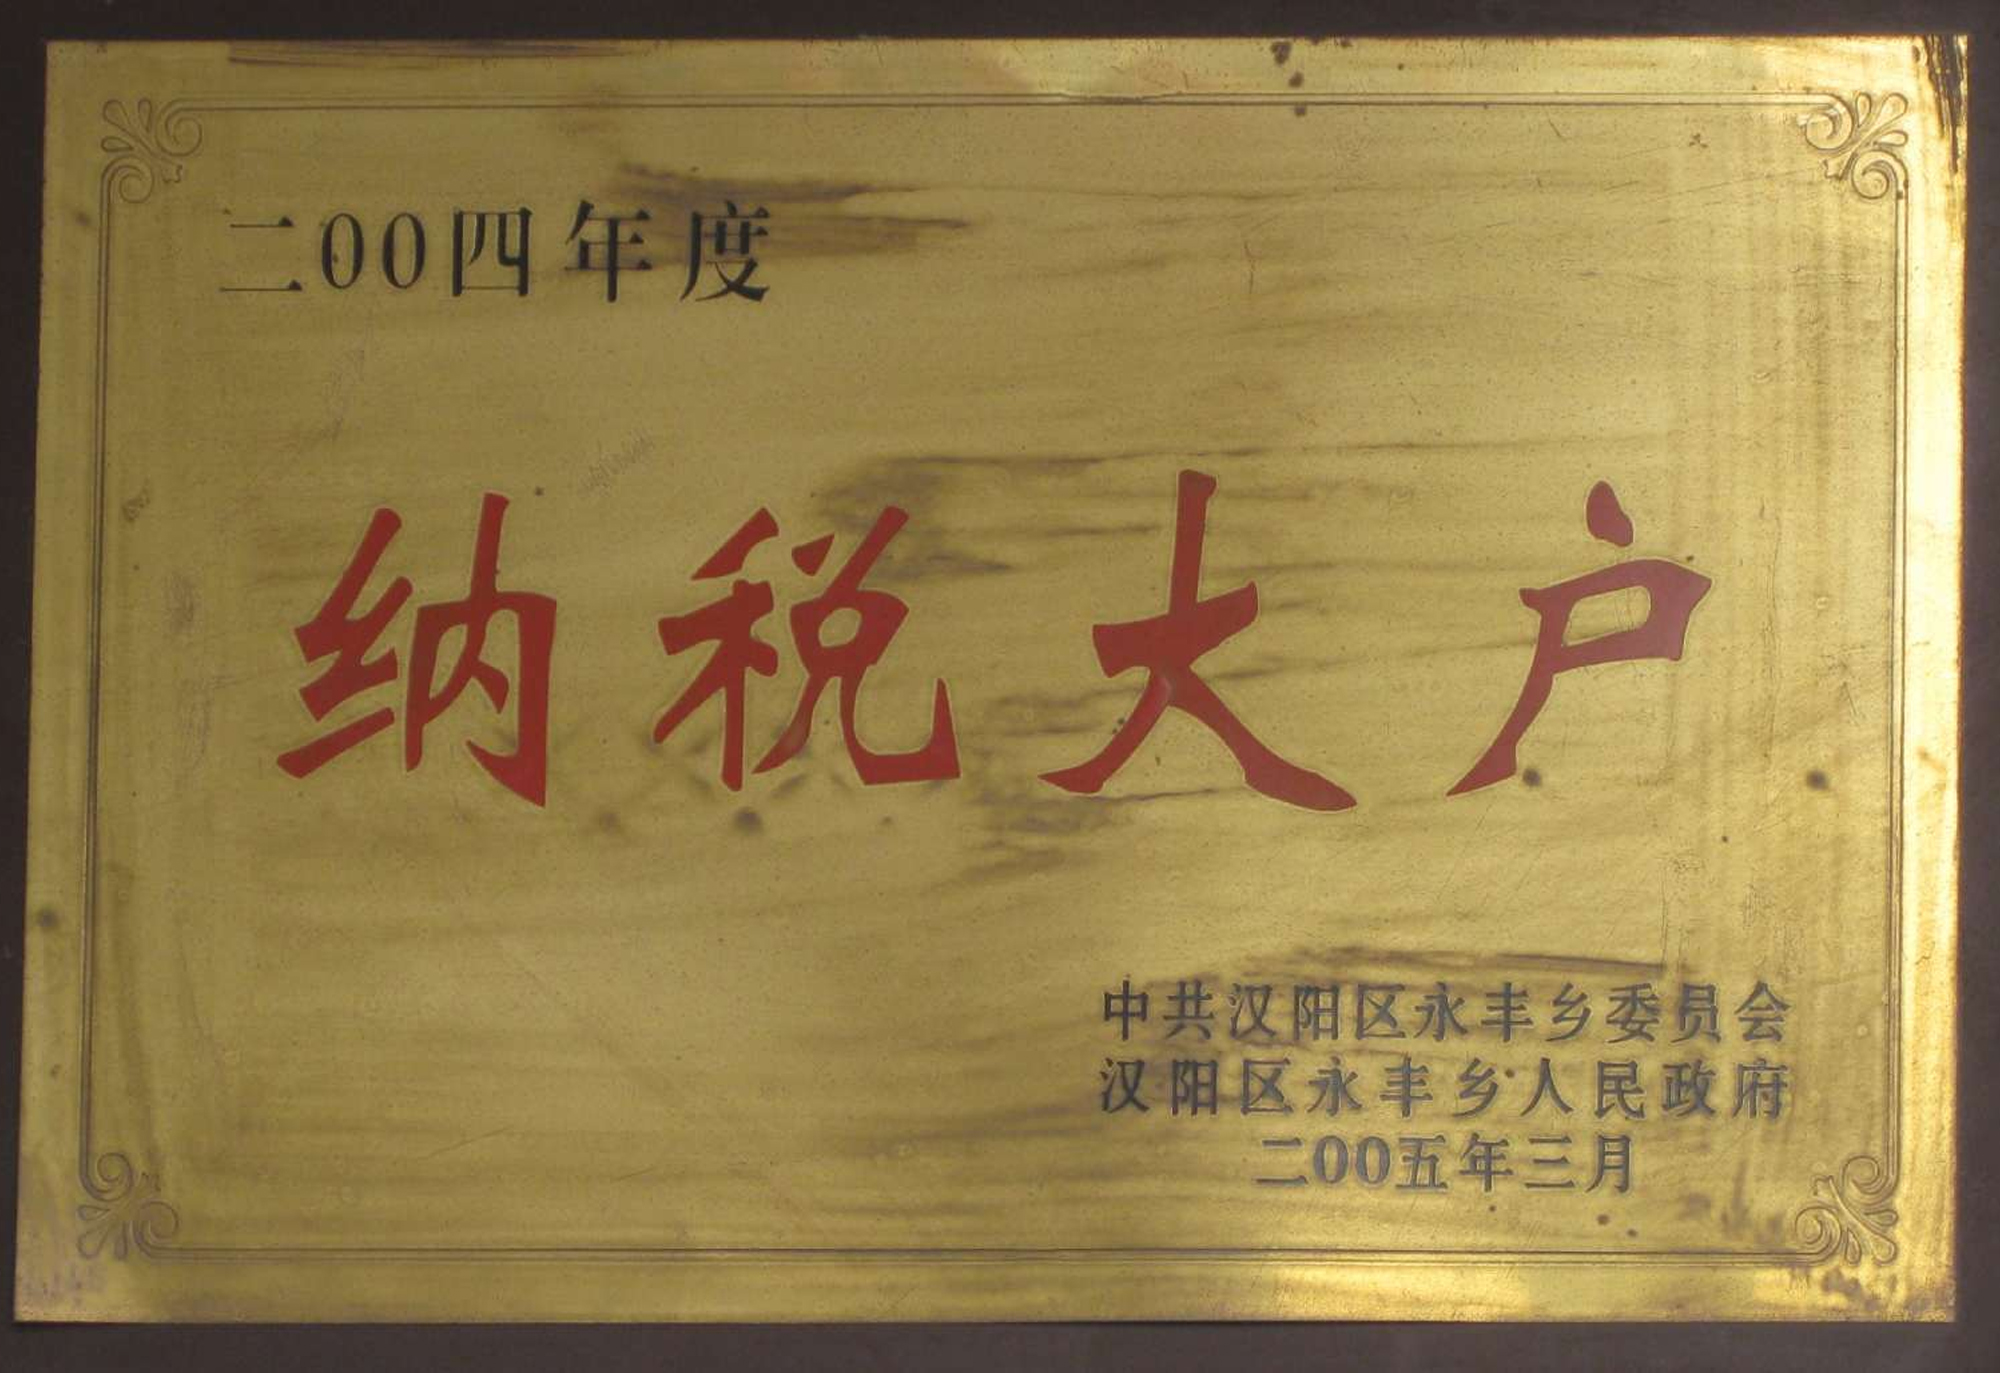 二00四年度
纳税大户
中共汉阳区永丰乡委员会
汉阳区永丰乡人民政府
二00五年三月